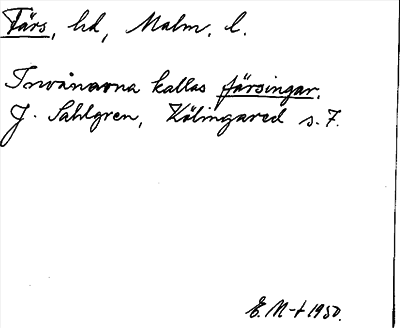 Färs, hd, Malm. l.
Invånarna kallas färsingar.
J. Sahlgren, Kölingared s. 7.
E. M-t 1950.